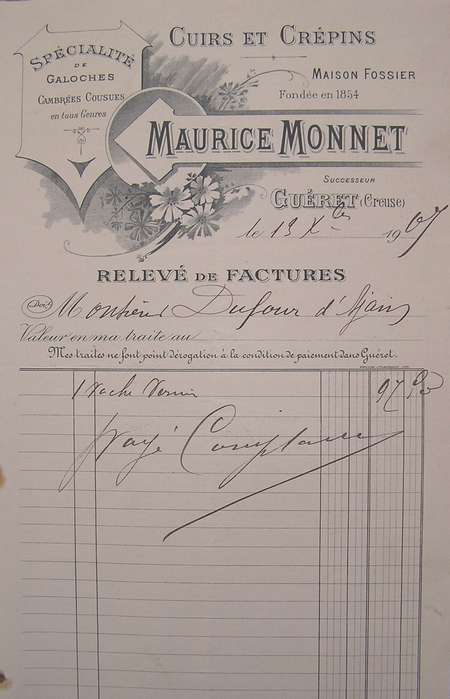 SPÉCIALITÉ
DE
GALOCHES
CAMBRÉES COUSUES
en tous Genres
CUIRS ET CRÉPINS
MAISON FOSSIER
Fondée en 1854
MAURICE MONNET
SUCCESSEUR
GUÉRET (Creuse)
le 13 Xbre 1907
RELEVÉ DE FACTURES
Doit Monsieur Dufour d'Ajain
Valeur en ma traite au
Mes traites ne font point dérogation à la condition de paiement dans Guéret.
1 Vache Vernis 97
payé Comptant